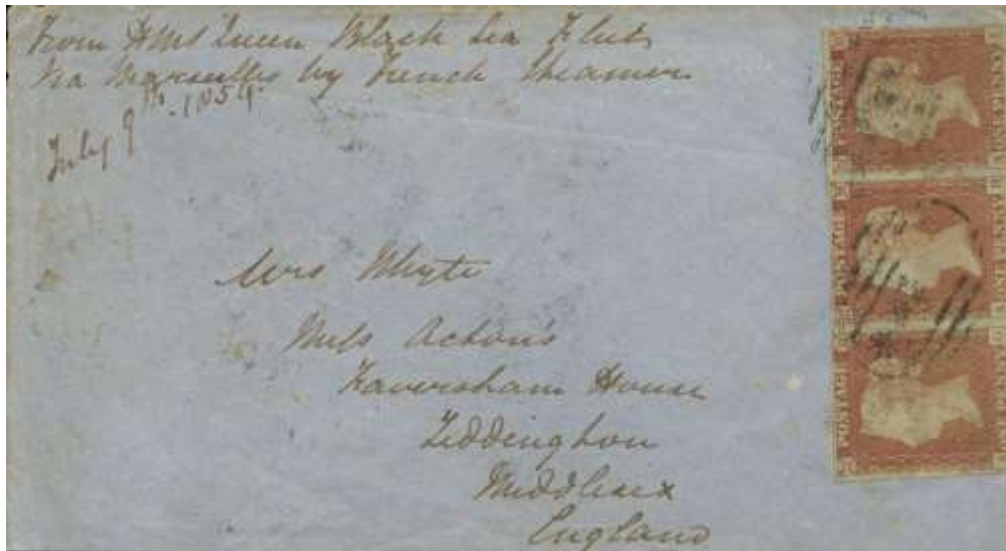 From HMS Queen Black Sea Fleet
Via Marseilles by French Steamer
July 9th. 1854.
Mrs Whyte
Miss Acton's
Faversham House
Teddington
Middlesex
England